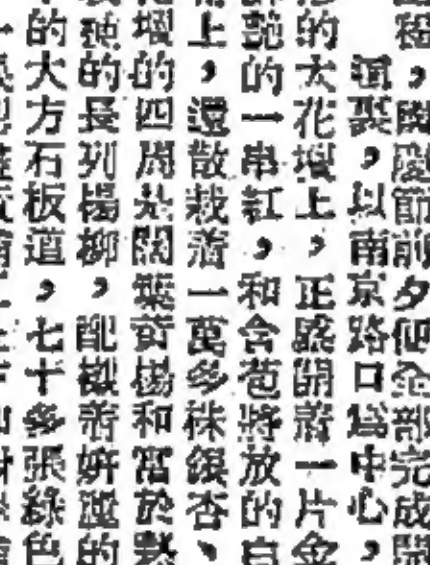 ,慶節前夕便全部完成開
,以南京路口爲中心,
的大花壇上,正盛開着一片金
艷的一串紅,和含苞將放的白
上,還散栽着一萬多株銀杏、
壇的四周是闊葉黃楊和富於
的長列楊柳,配襯着妍麗的
的大方石板道,七十多張綠色